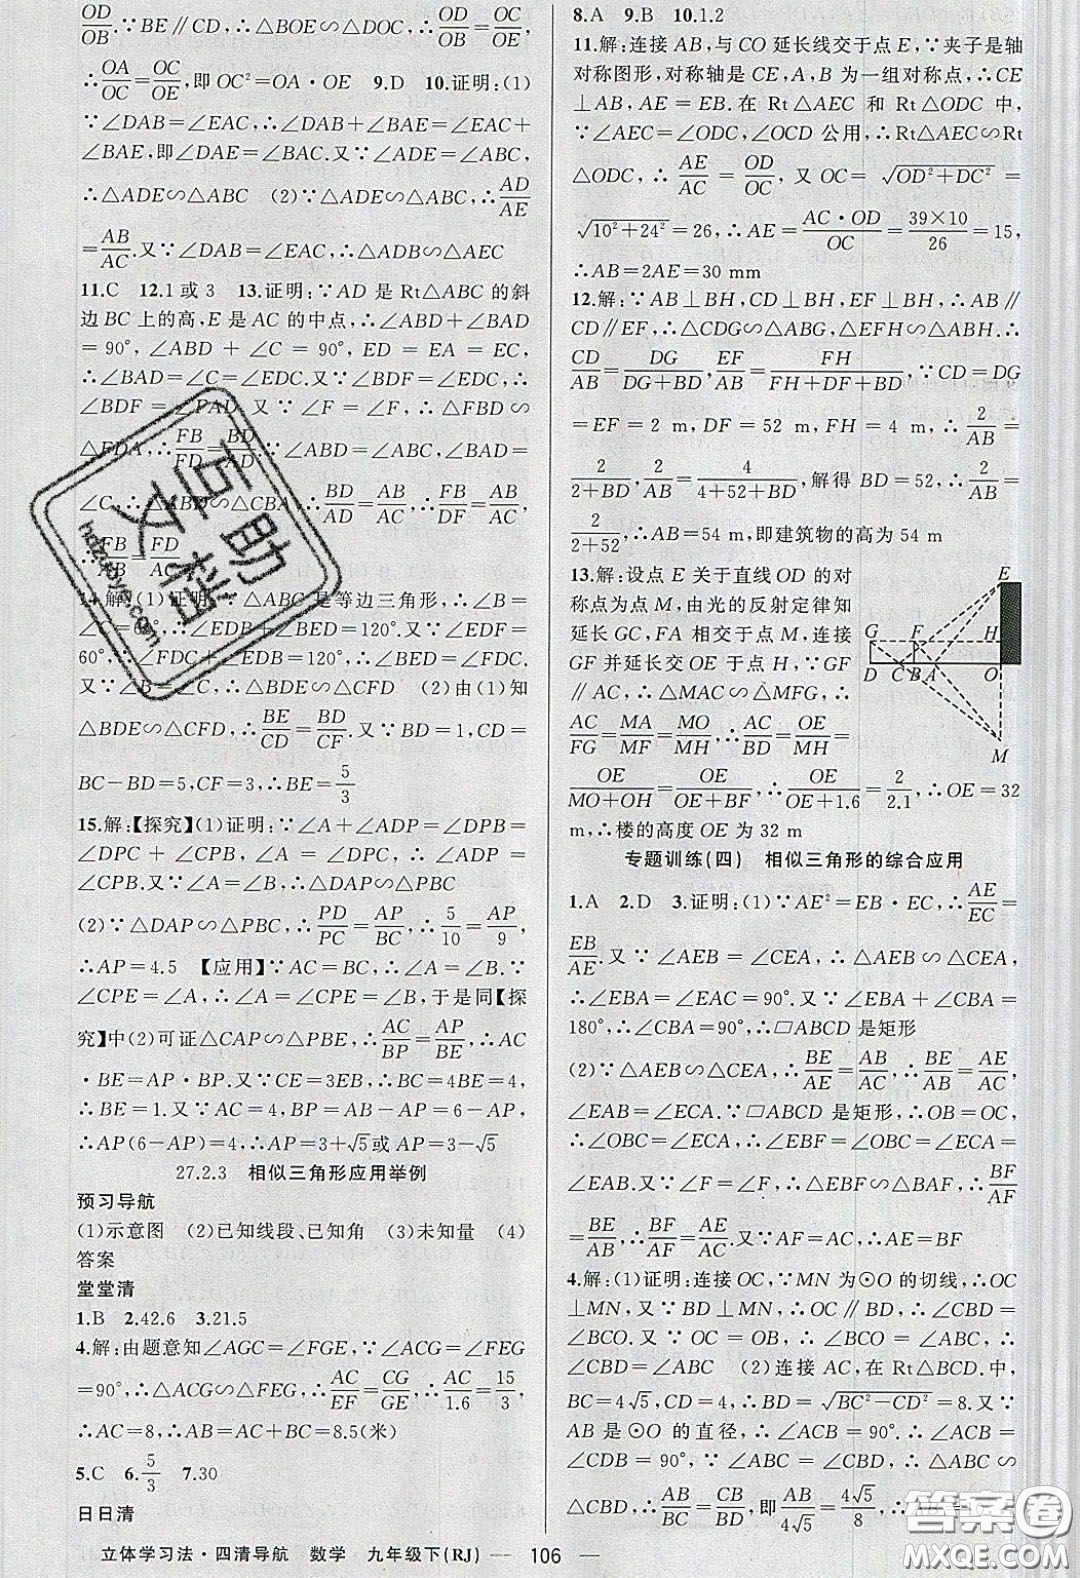 OD/OB.∵BE∥CD,∴△BOE∽△DOC,∴OD/OB=OC/OE,
∴OA/OC=OC/OE,即 OC²=OA·OE 9.D 10.证明:(1)
∵∠DAB=∠EAC,∴∠DAB+∠BAE=∠EAC+
∠BAE,即∠DAE=∠BAC.又∵∠ADE=∠ABC,
∴△ADE∽△ABC (2)∵△ADE∽△ABC,∴AD/AE
=AB/AC.又∵∠DAB=∠EAC,∴△ADB∽△AEC
11.C 12.1 或 3 13.证明:∵AD 是 Rt△ABC 的斜
边 BC 上的高,E 是 AC 的中点,∴∠ABD+∠BAD
=90°,∠ABD+∠C=90°,ED=EA=EC,
∴∠BAD=∠C=∠EDC.又∵∠BDF=∠EDC,∴
∠BDF=∠PAD 又∵∠F=∠F,∴△FBD∽
△FDA,∴FB/FD=BD/AD.∵∠ABD=∠ABC,∠BAD=
∠C,∴△ABD∽△CBA,∴BD/AD=AB/AC,∴FB/DF=AB/AC,
∴FB/AB=FD/AC
14.解:(1)证明:∵△ABC 是等边三角形,∴∠B=
∠C=60°,∴∠BDE+∠BED=120°.又∵∠EDF=
60°,∴∠FDC+∠EDB=120°,∴∠BED=∠FDC.
又∵∠B=∠C,∴△BDE∽△CFD (2)由(1)知
△BDE∽△CFD,∴BE/CD=BD/CF.又∵BD=1,CD=
BC-BD=5,CF=3,∴BE=5/3
15.解:【探究】(1)证明:∵∠A+∠ADP=∠DPB=
∠DPC+∠CPB,∠A=∠DPC,∴∠ADP=
∠CPB.又∵∠A=∠B,∴△DAP∽△PBC
(2)∵△DAP∽△PBC,∴PD/PC=AP/BC,∴5/10=AP/9,
∴AP=4.5 【应用】∵AC=BC,∴∠A=∠B.∵
∠CPE=∠A,∴∠A=∠CPE=∠B,于是同【探
究】中(2)可证△CAP∽△PBE,∴AC/BP=AP/BE,∴AC
·BE=AP·BP.又∵CE=3EB,∴BC=4BE=4,
∴BE=1.又∵AC=4,BP=AB-AP=6-AP,
∴AP(6-AP)=4,∴AP=3+√5或 AP=3-√5
27.2.3 相似三角形应用举例
预习导航
(1)示意图 (2)已知线段、已知角 (3)未知量 (4)
答案
堂堂清
1.B 2.42.6 3.21.5
4.解:由题意知∠AGC=∠FGE,∵∠ACG=∠FEG
=90°,∴△ACG∽△FEG,∴AC/EF=CG/GE,∴AC/1.6=15/3,
∴AC=8,∴AB=AC+BC=8.5(米)
5.C 6.5/3 7.30
日日清
8.A 9.B 10.1.2
11.解:连接 AB,与 CO 延长线交于点 E,∵夹子是轴
对称图形,对称轴是 CE,A,B 为一组对称点,∴CE
⊥AB,AE=EB.在 Rt△AEC 和 Rt△ODC 中,
∵∠AEC=∠ODC,∠OCD 公用,∴Rt△AEC∽Rt
△ODC,∴AE/AC=OD/OC,又 OC=√(OD²+DC²)=
√(10²+24²)=26,∴AE=AC·OD/OC=39×10/26=15,
∴AB=2AE=30 mm
12.解:∵AB⊥BH,CD⊥BH,EF⊥BH,∴AB∥
CD∥EF,∴△CDG∽△ABG,△EFH∽△ABH.∴
CD/AB=DG/(DG+BD),EF/AB=FH/(FH+DF+BD).∵CD=DG
=EF=2 m,DF=52 m,FH=4 m,∴2/AB=
2/(2+BD),2/AB=4/(4+52+BD),解得 BD=52,∴2/AB=
2/(2+52),∴AB=54 m,即建筑物的高为 54 m
13.解:设点 E 关于直线 OD 的对
称点为点 M,由光的反射定律知
延长 GC,FA 相交于点 M,连接
GF 并延长交 OE 于点 H,∵GF
∥AC,∴△MAC∽△MFG,∴
AC/FG=MA/MF=MO/MH,∴AC/BD=OE/MH=
OE/(MO+OH)=OE/(OE+BF),∴OE/(OE+1.6)=2/2.1,∴OE=32
m,∴楼的高度 OE 为 32 m
E
G F H
D C B A O
M
专题训练(四) 相似三角形的综合应用
1.A 2.D 3.证明:(1)∵AE²=EB·EC,∴AE/EC=
EB/AE.又∵∠AEB=∠CEA,∴△AEB∽△CEA,
∴∠EBA=∠EAC=90°.又∵∠EBA+∠CBA=
180°,∴∠CBA=90°,∴▱ABCD是矩形
(2)∵△AEB∽△CEA,∴BE/AE=AB/AC,∴BE/AB=AE/AC,
∠EAB=∠ECA.∵▱ABCD 是矩形,∴OB=OC,
∴∠OBC=∠ECA,∴∠EBF=∠OBC=∠ECA=
∠EAB.又∵∠F=∠F,∴△EBF∽△BAF,∴BF/AF
=BE/AB,∴BF/AF=AE/AC.又∵AF=AC,∴AE=BF
4.解:(1)证明:连接 OC,∵MN 为⊙O 的切线,∴OC
⊥MN,又∵BD⊥MN,∴OC∥BD,∴∠CBD=
∠BCO.又∵OC=OB,∴∠BCO=∠ABC,∴
∠CBD=∠ABC (2)连接 AC,在 Rt△BCD.中,
BC=4√5,CD=4,∴BD=√(BC²-CD²)=8.又∵
AB 是⊙O 的直径,∴∠ACB=90°.∴∠ACB=
∠CDB=90°.∵∠ABC=∠CBD,∴△ABC∽
△CBD,∴AB/BC=CB/BD,即AB/4√5=4√5/8
立体学习法·四清导航 数学 九年级下(RJ) — 106 —
互助
文档
hdzuoye.com
答案圈
MXQE.COM